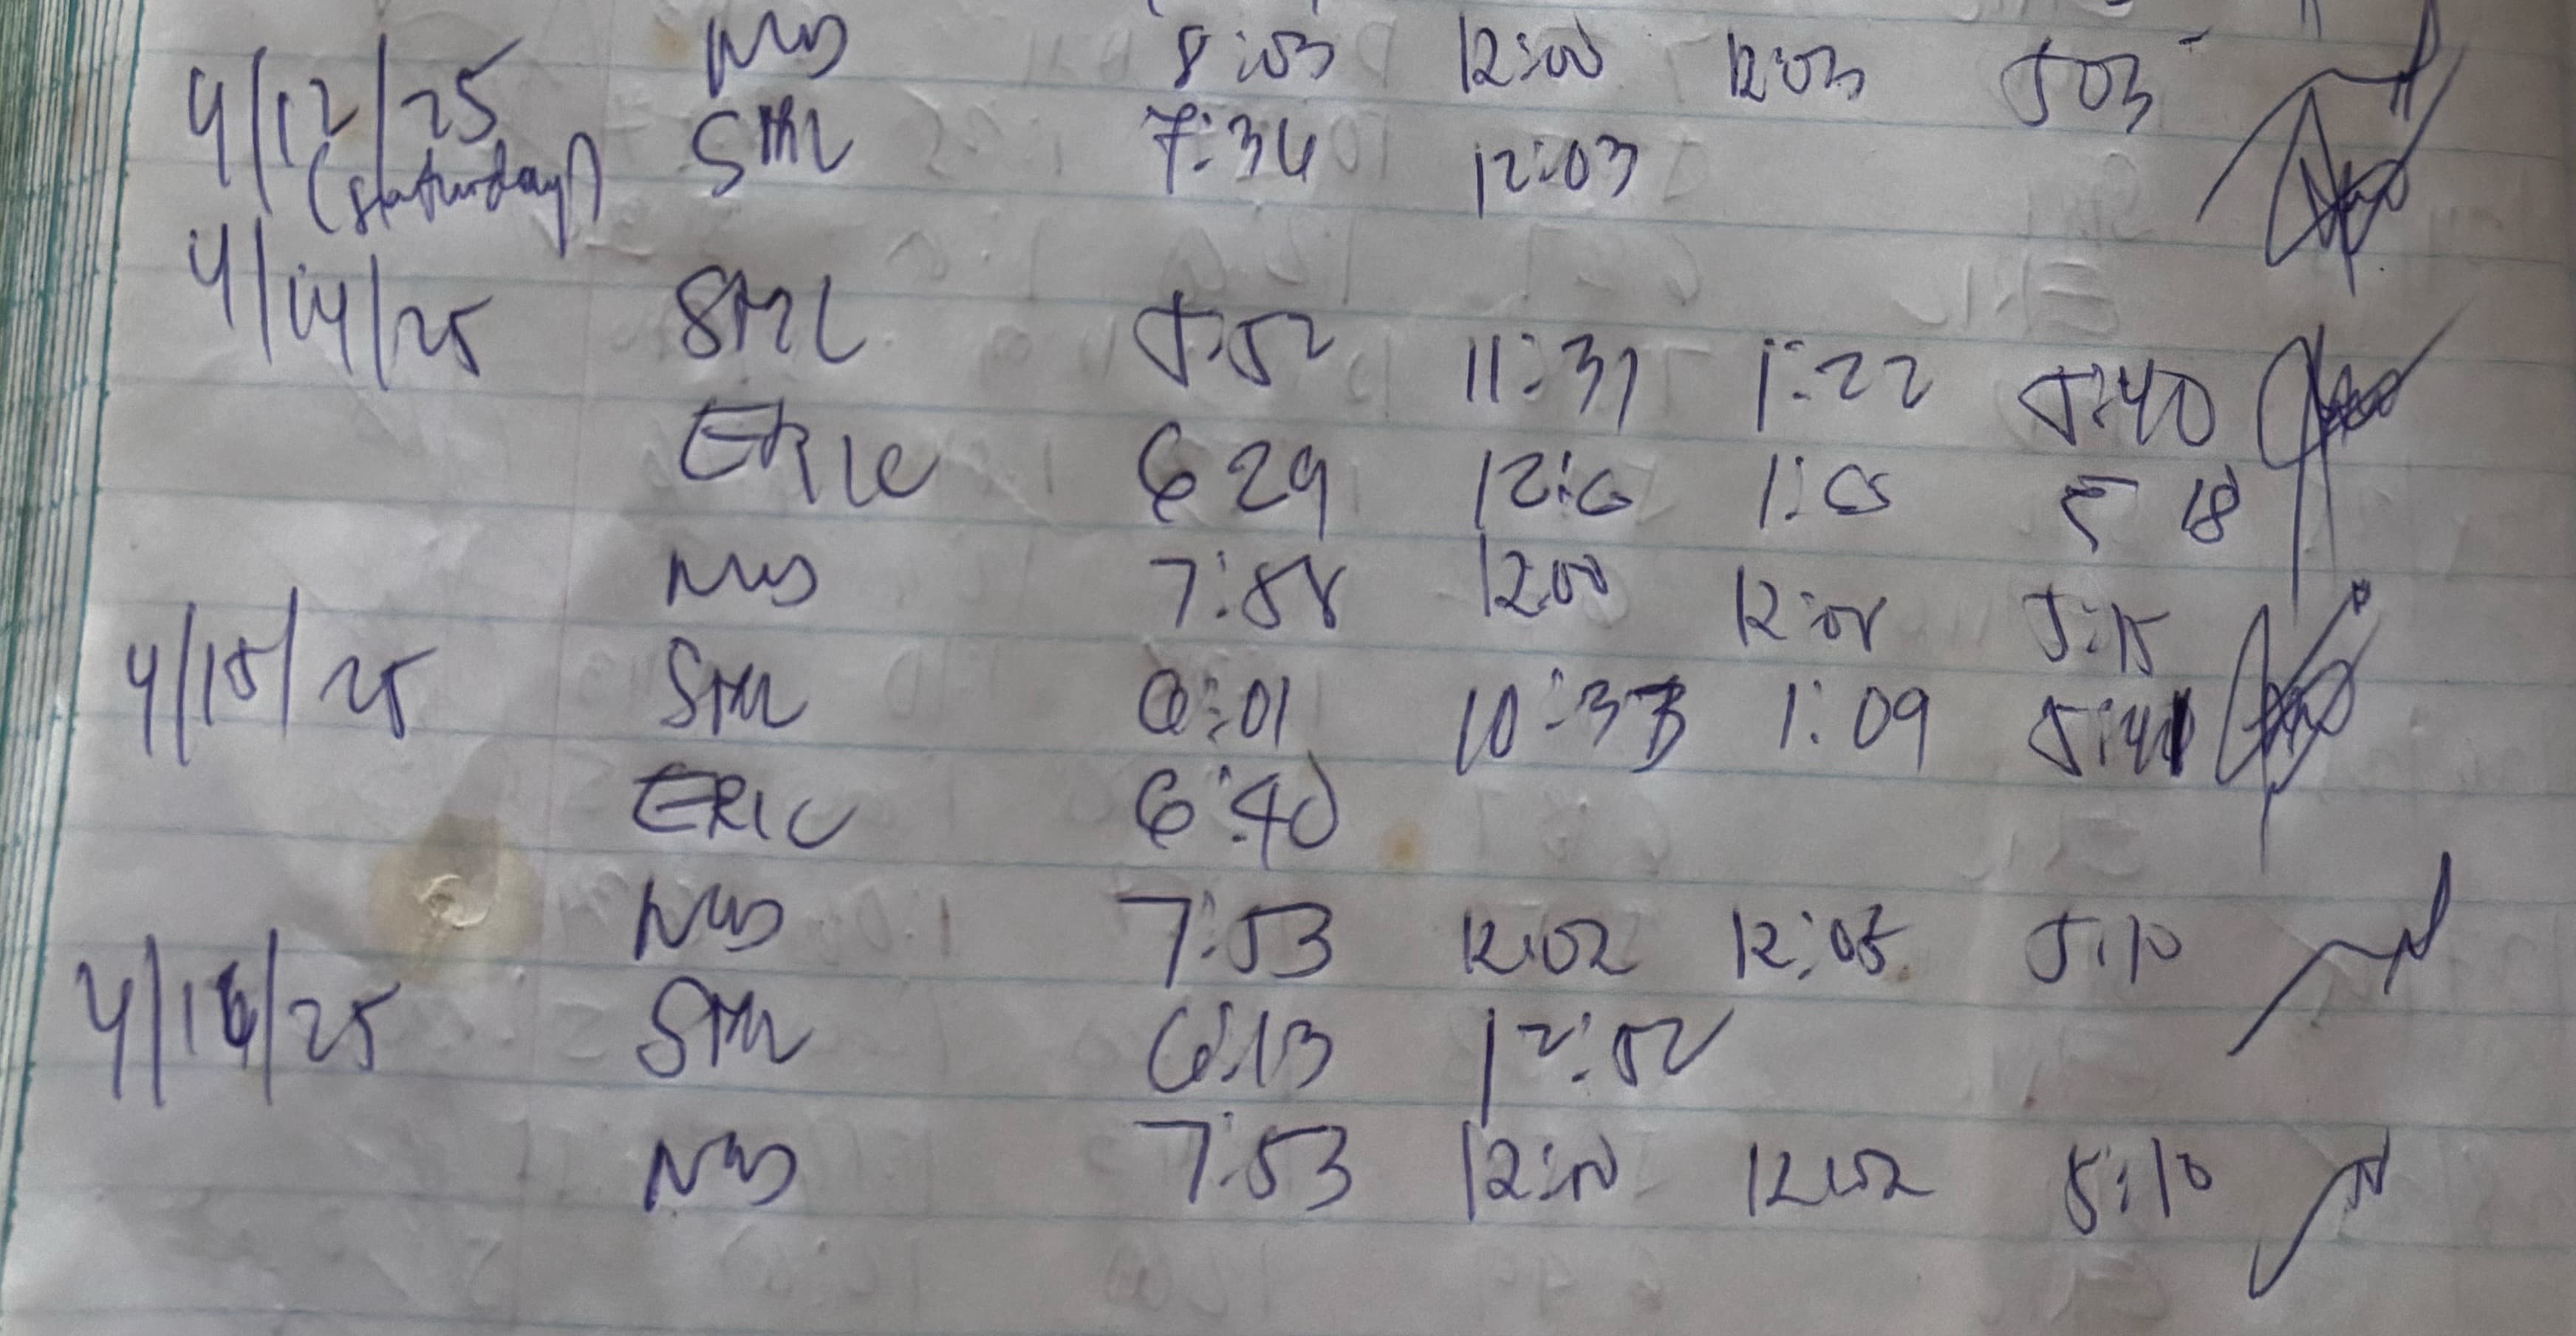 8:03 12:00 12:03 5 03
4/12/25 SML 7:34 12:03
(Saturday)
4/14/25 SML 5:52 11:31 1:22 5:40
ERIC 6 29 12:6 1:05 5 18
7:58 12:00 12:08 5:15
4/15/25 SML 6:01 10:33 1:09 5:41
ERIC 6:40
7:53 12:02 12:05 5:10
4/16/25 SML 6:13 12:52
7:53 12:00 12:02 5:10